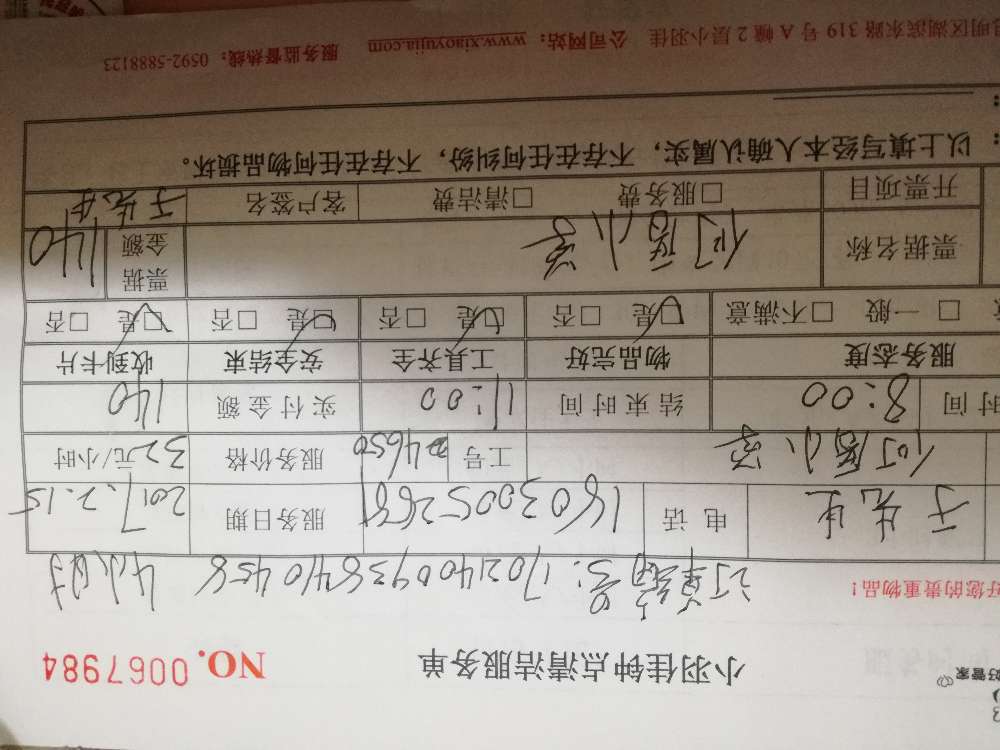 好管家
小羽佳钟点清洁服务单 NO. 0067984
好您的贵重物品！
订单编号：170214009386410458 4小时
于先生 电话 18030052681 服务日期 2017.2.15
工号 04650 服务价格 32元/小时
时间 8:00 结束时间 11:00 实付金额 140
服务态度 物品完好 工具齐全 安全结束 收到卡片
□ 一般 □不满意 □是 □否 □是 □否 □是 □否 □是 □否
票据名称 票据金额 140
开票项目 □服务费 □清洁费 客户签名 于先生
以上填写经本人确认属实，不存在任何纠纷，不存在任何物品损坏。
明区湖滨东路 319 号 A 幢 2 层小羽佳 公司网站：www.xiaoyujia.com 服务监督热线：0592-5888123